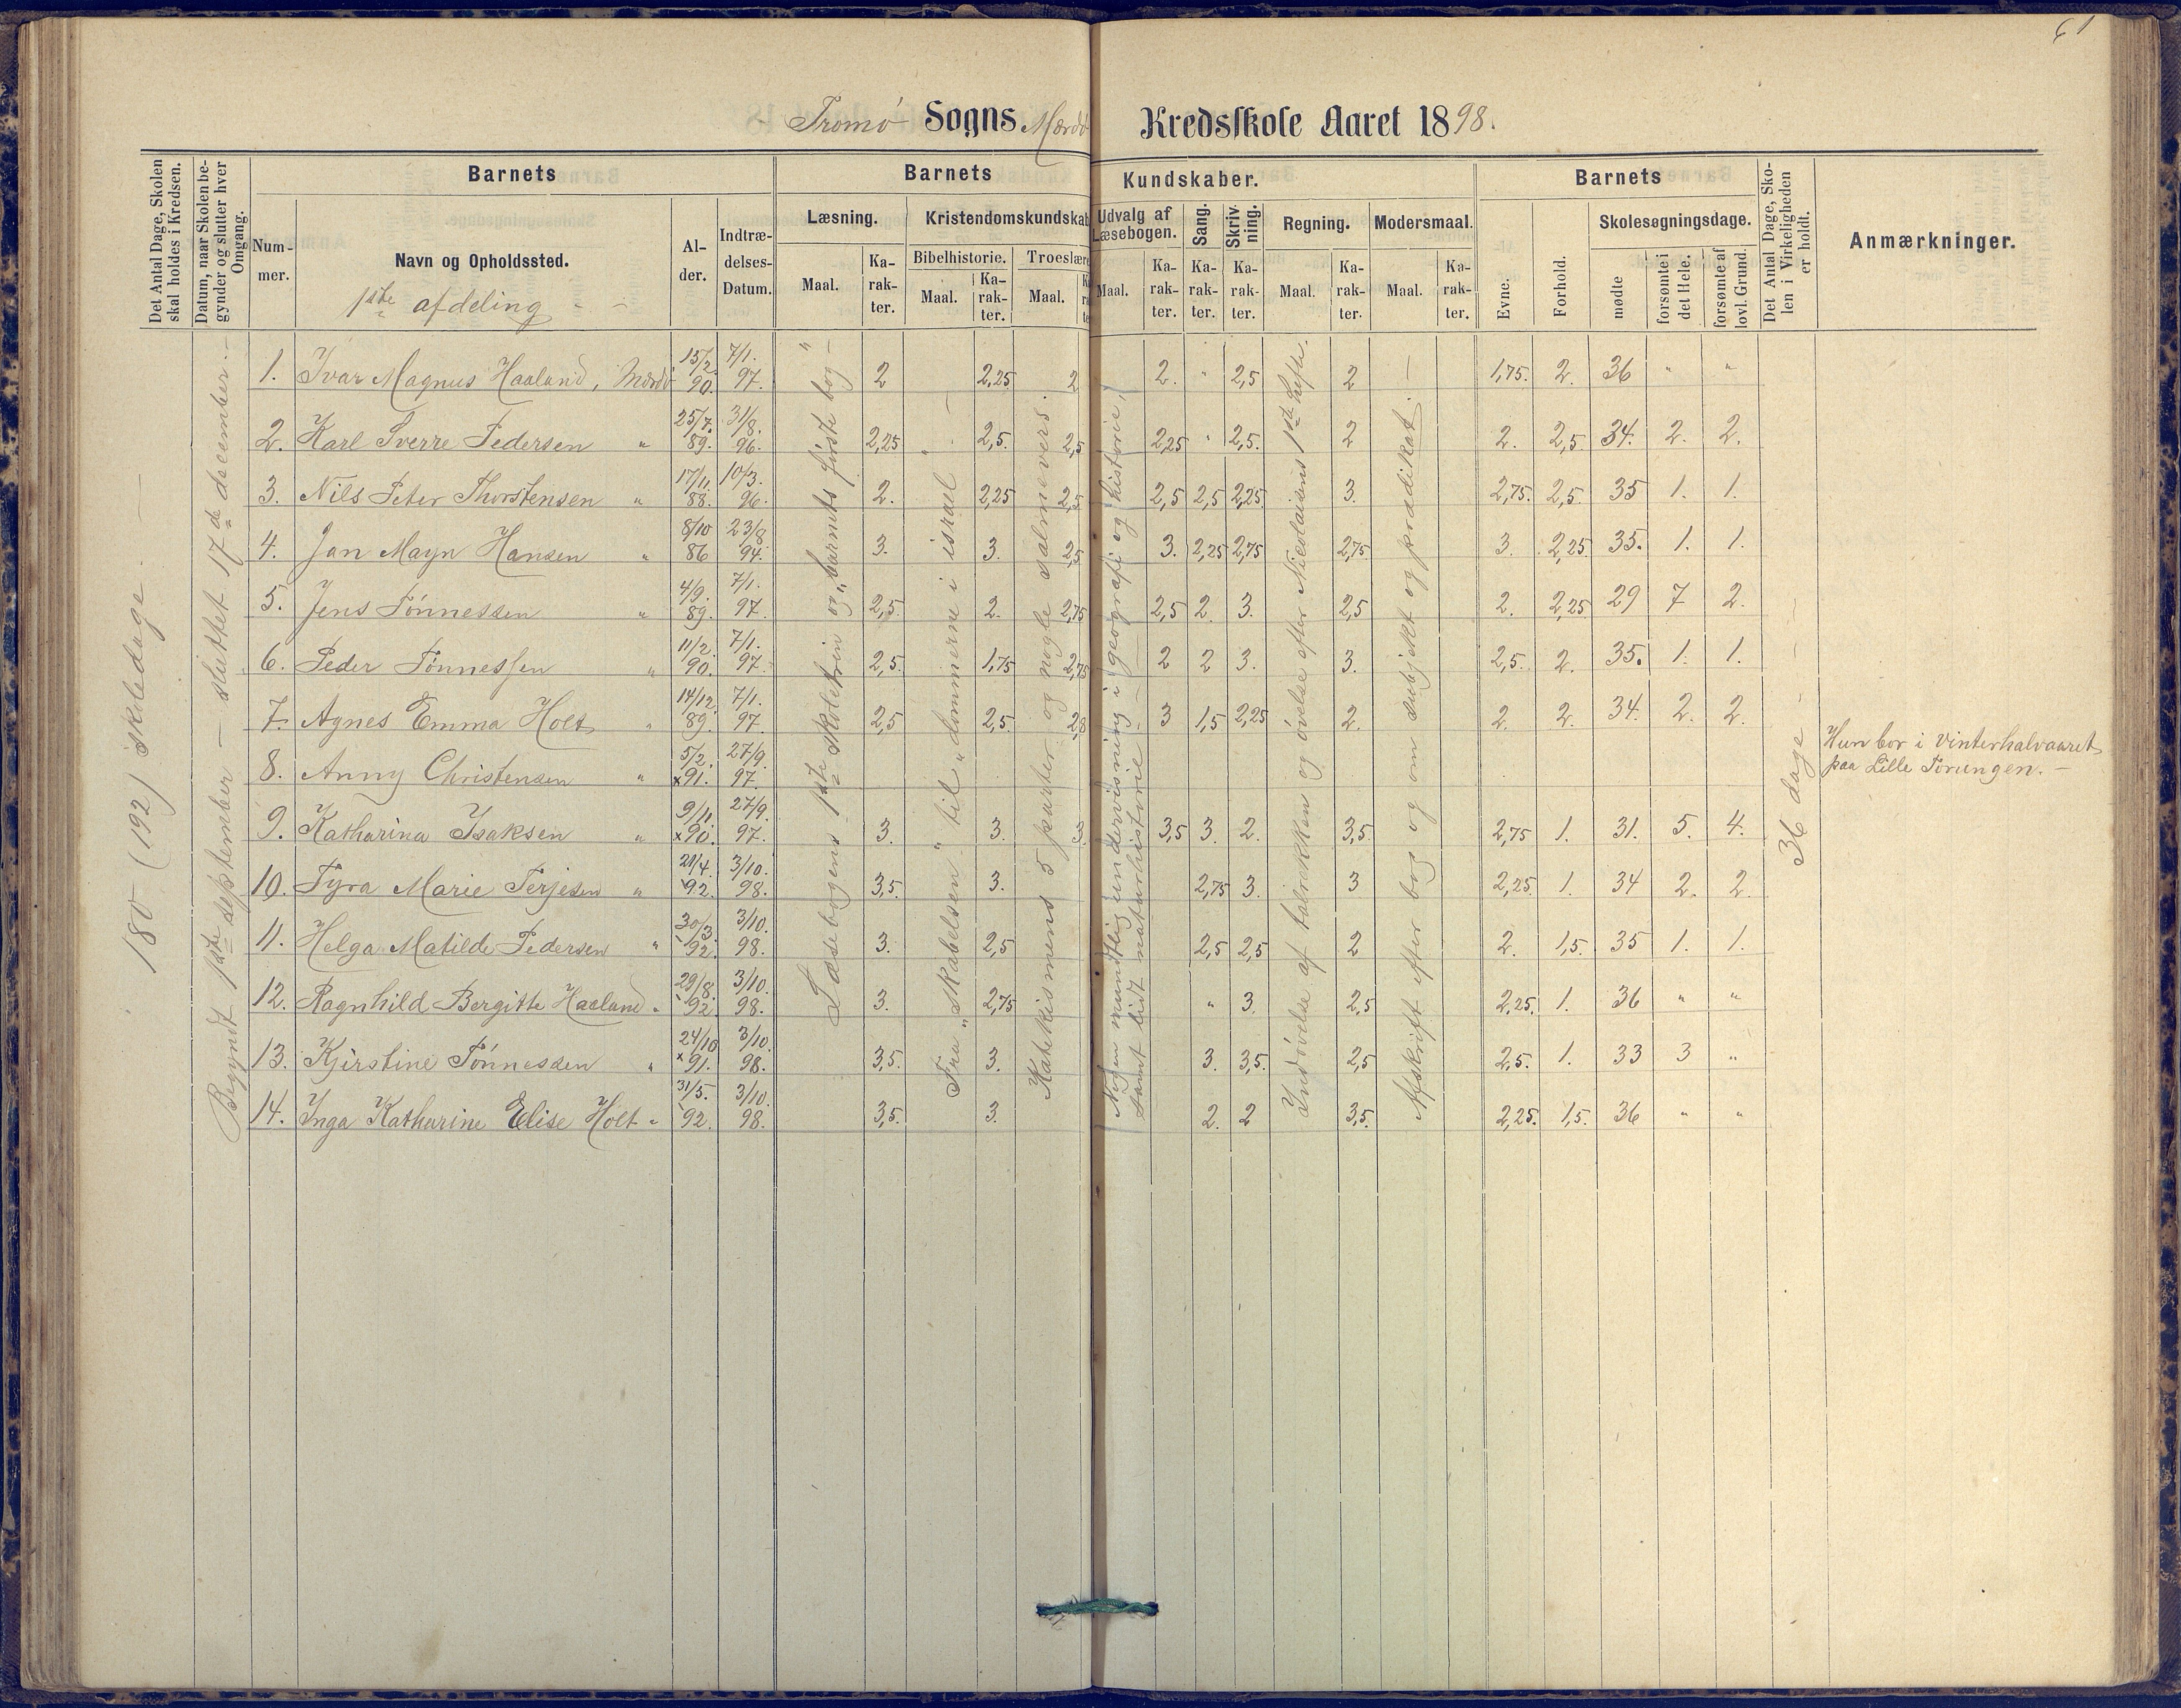 61
Tromø Sogns Mærdø Kredsskole Aaret 1898.
Det Antal Dage, Skolen skal holdes i Kredsen.
Datum, naar Skolen begynder og slutter hver Omgang.
Barnets
Nummer.
Navn og Opholdssted.
1ste afdeling
Alder.
Indtrædelses-Datum.
Barnets Kundskaber.
Læsning.
Maal.
Karakter.
Kristendomskundskab
Bibelhistorie.
Maal.
Karakter.
Troeslære
Maal.
Udvalg af Læsebogen.
Maal.
Karakter.
Sang.
Karakter.
Skrivning.
Karakter.
Regning.
Maal.
Karakter.
Modersmaal.
Maal.
Karakter.
Barnets
Evne.
Forhold.
Skolesøgningsdage.
mødte
forsømte i det Hele.
forsømte af lovl. Grund.
Det Antal Dage, Skolen i Virkeligheden er holdt.
Anmærkninger.
180 (192) skoledage.
Begyndt 1ste september – sluttet 17de december.
Læsebogens 1ste skoletrin og „barnets første bog"
Fra „skabelsen" til „dommerne i israel"
Katekismens 5 parter og nogle salmevers.
Nogen mundtlig undervisning i geografi og historie,
samt lidt naturhistorie
Indøvelse af talrekken og øvelse efter Nicolaisens 1ste hefte.
Afskrift efter bog og om subjekt og prædikat.
36 dage
1. Ivar Magnus Haaland, Mærdø 15/2. 90. 7/1. 97. 2 2,25 2 2. " 2,5 2 1,75. 2. 36 " "
2. Karl Sverre Pedersen " 25/7. 89. 31/8. 96. 2,25 2,5. 2,5 2,25 " 2,5. 2 2. 2,5 34. 2. 2.
3. Nils Peter Thorstensen " 17/11. 88. 10/3. 96. 2. 2,25 2,5 2,5 2,5 2,25 3. 2,75. 2,5. 35 1. 1.
4. Jan Mayn Hansen " 8/10 86 23/8. 94. 3. 3. 2,5 3. 2,25 2,75 2,75 3. 2,25 35. 1. 1.
5. Jens Tønnessen " 4/9. 89. 7/1. 97. 2,5. 2. 2,75 2,5 2. 3. 2,5 2. 2,25 29 7 2.
6. Peder Tønnessen " 11/2. 90. 7/1. 97. 2,5. 1,75 2,75 2 2 3. 3. 2,5. 2. 35. 1. 1.
7. Agnes Emma Holt " 14/12. 89. 7/1. 97. 2,5 2,5. 2,8 3 1,5 2,25 2. 2. 2. 34. 2. 2.
8. Anny Christensen " 5/2. ×91. 27/9. 97. Hun bor i Vinterhalvaaret
paa Lille Torungen.
9. Katharina Isaksen " 9/11. ×90. 27/9. 97. 3. 3. 3. 3,5 3. 2. 3,5. 2,75 1. 31. 5. 4.
10. Tyra Marie Terjesen " 21/4. 92. 3/10. 98. 3,5 3. 2,75 3. 3 2,25. 1. 34 2. 2.
11. Helga Matilde Pedersen " 30/3. 92. 3/10. 98. 3. 2,5 2,5 2,5 2 2. 1,5. 35 1. 1.
12. Ragnhild Bergitte Haaland " 29/8. 92. 3/10. 98. 3. 2,75 " 3. 2,5 2,25. 1. 36 " "
13. Kjerstine Tønnessen " 24/10 ×91. 3/10. 98. 3,5. 3. 3. 3,5. 2,5 2,5. 1. 33 3 "
14. Inga Katharine Elise Holt " 31/5. 92. 3/10. 98. 3,5. 3. 2. 2 3,5. 2,25. 1,5. 36 " "